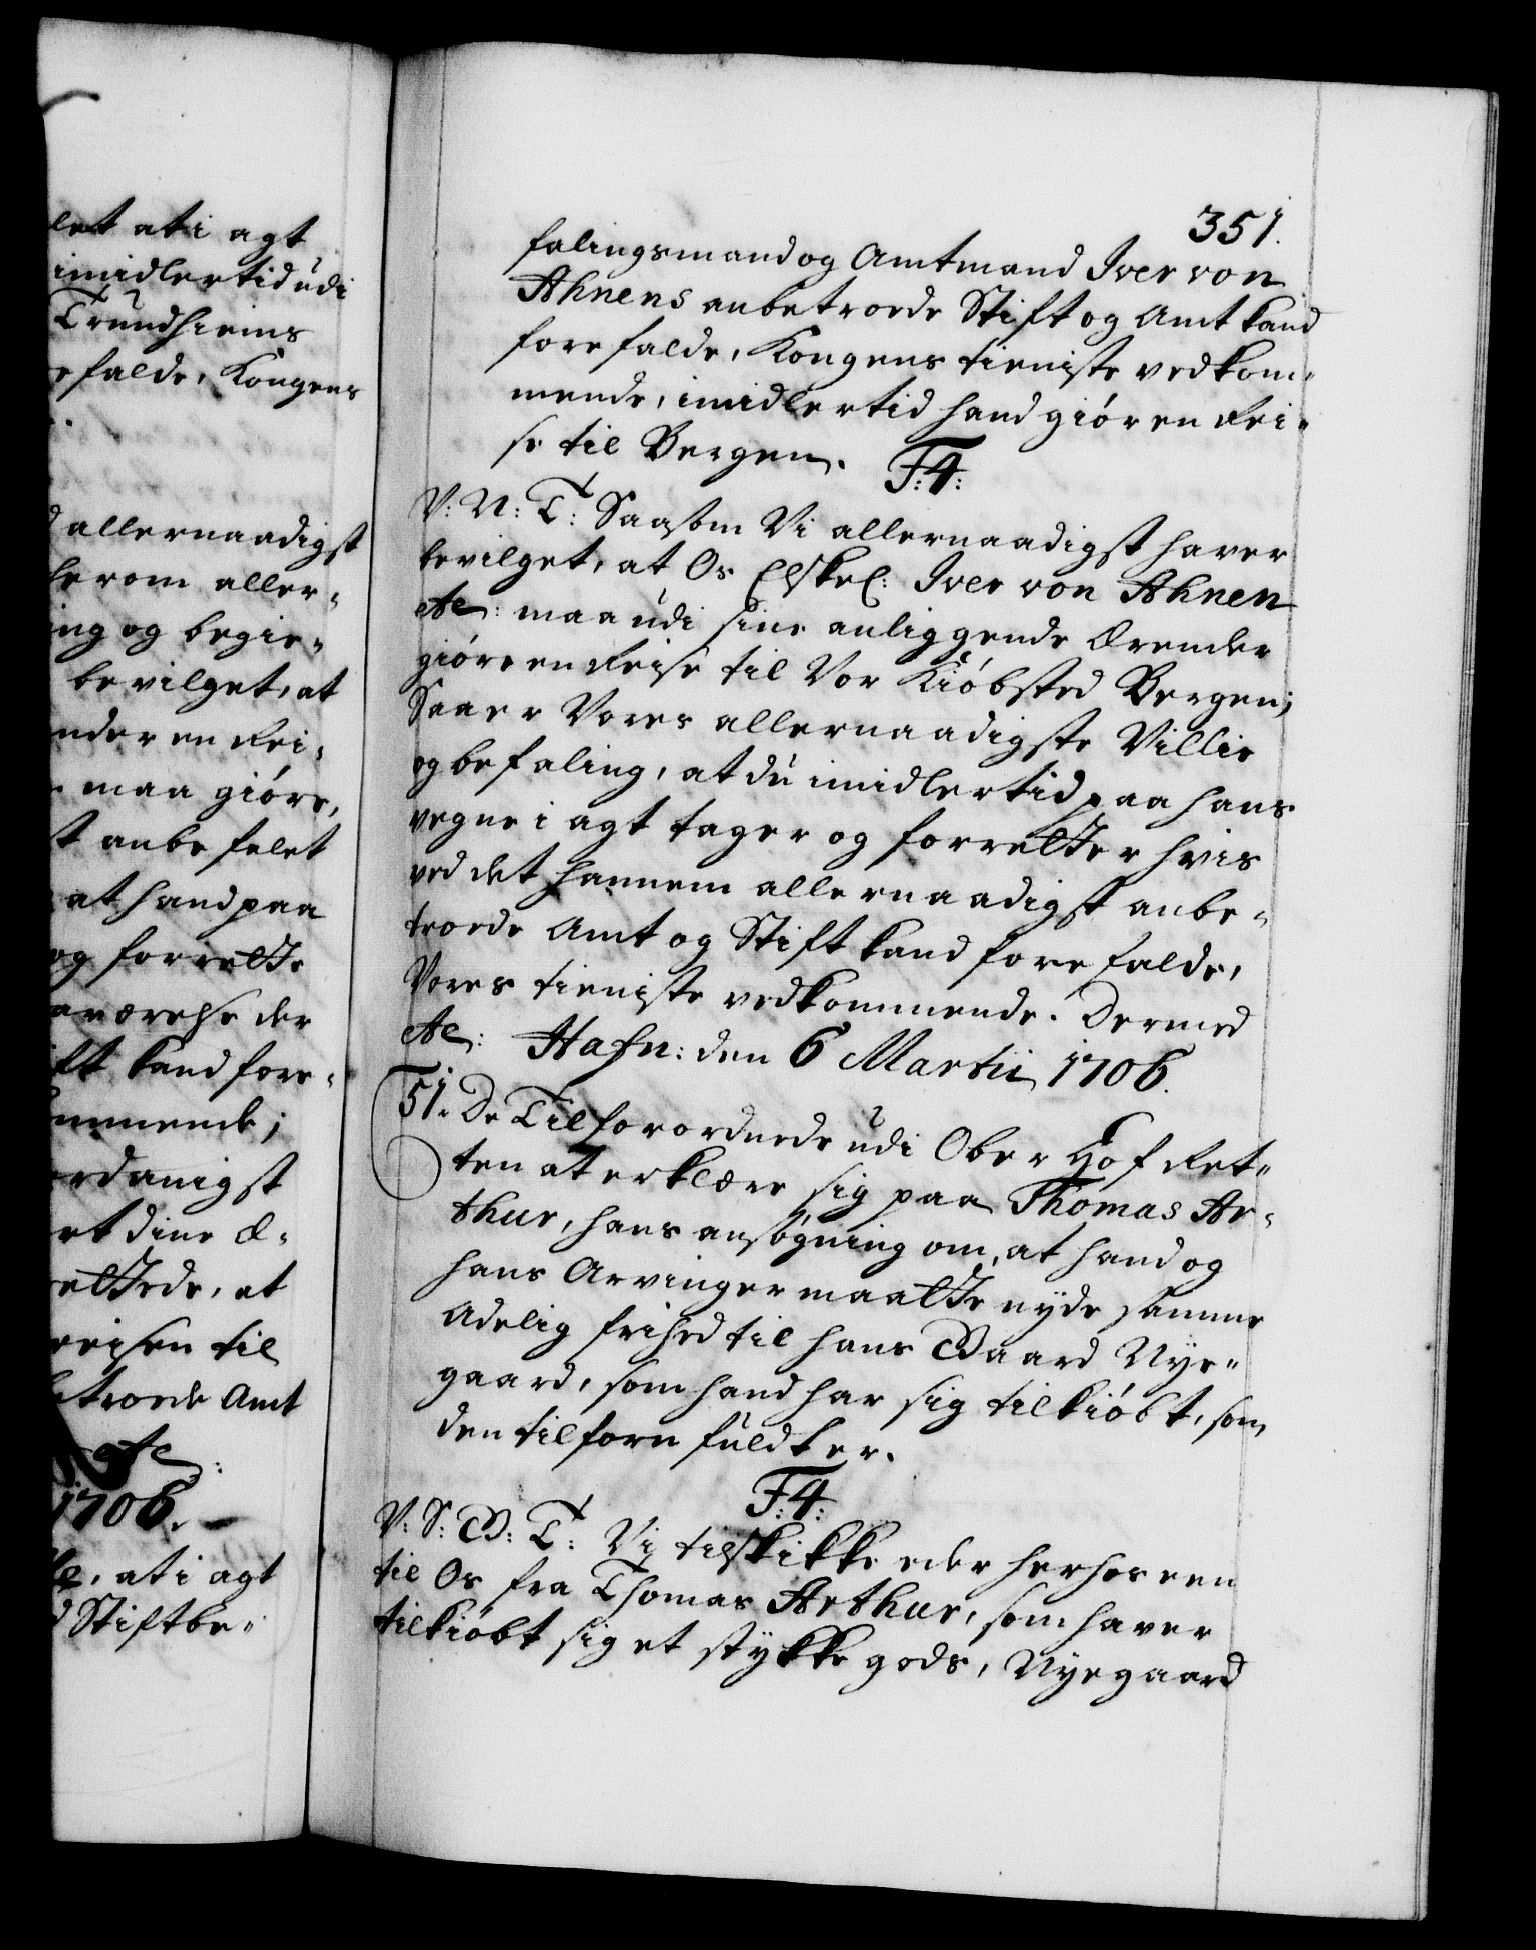 let at i agt
imidlertid udi
Trundhiems
efalde, Kongens
allernaadigst
herom aller-
ing og begie-
bevilget, at
ender en Rei-
maa giöre,
st anbefalet
at hand paa
og forrette
erværelse der
ift kand fore-
ommende;
erdanigst
et dine Æ-
rettede, at
reisen til
betroede Amt
etc:
1706.
at i agt
Stiftbe-
351.
falingsmand og Amtmand Iver von
Ahnens anbetroede Stift og Amt kand
forefalde, Kongens tieniste vedkom-
mende, imidlertid hand giör en Rei-
se til Bergen.
F: 4:
V: N: T: Saasom Vi allernaadigst haver
bevilget, at Os Elskel: Iver von Ahnen
etc: maa udi sine anliggende Ærender
giöre en Reise til Vor Kiöbsted Bergen;
Saa er Vores allernaadigste Villie
og befaling, at du imidlertid paa hans
vegne i agt tager og forretter hvis
ved det hannem allernaadigst anbe-
troede Amt og Stift kand forefalde,
Vores tieniste vedkommende. Dermed
etc: Hafn: den 6 Martii 1706.
51. De Tilforordnede udi Ober Hof Ret-
ten at erklære sig paa Thomas Ar-
thur, hans ansögning om, at hand og
hans Arvinger maatte nyde samme
Adelig frihed til hans Gaard Nye-
gaard, som hand har sig tilkiöbt, som
den tilforn fuldt er.
F: 4:
V: S: G: T: Vi tilskikke eder herhos een
til Os fra Thomas Arthur, som haver
tilkiöbt sig et stykke gods, Nyegaard